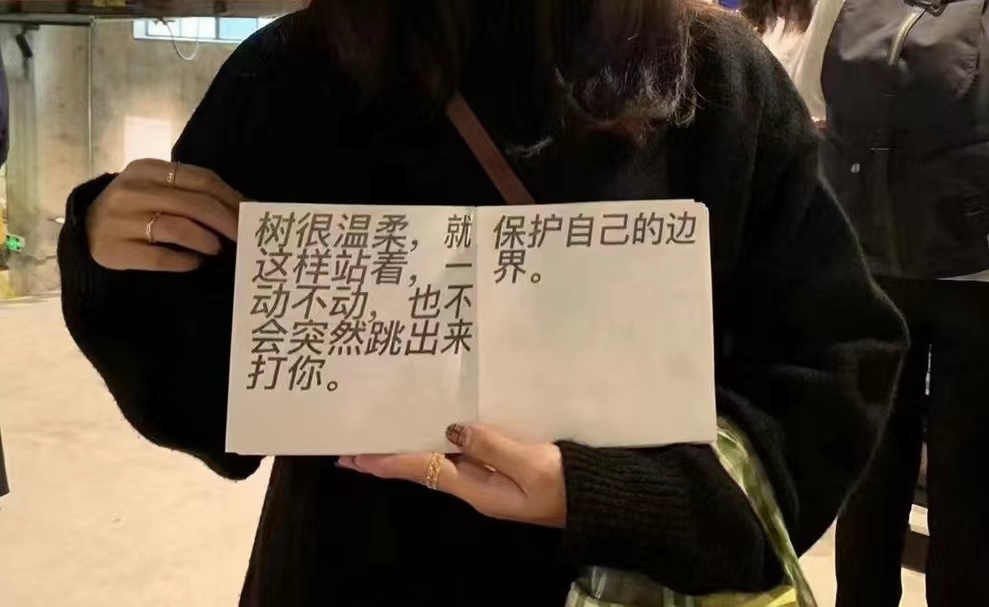 树很温柔，就
这样站着，一
动不动，也不
会突然跳出来
打你。
保护自己的边
界。